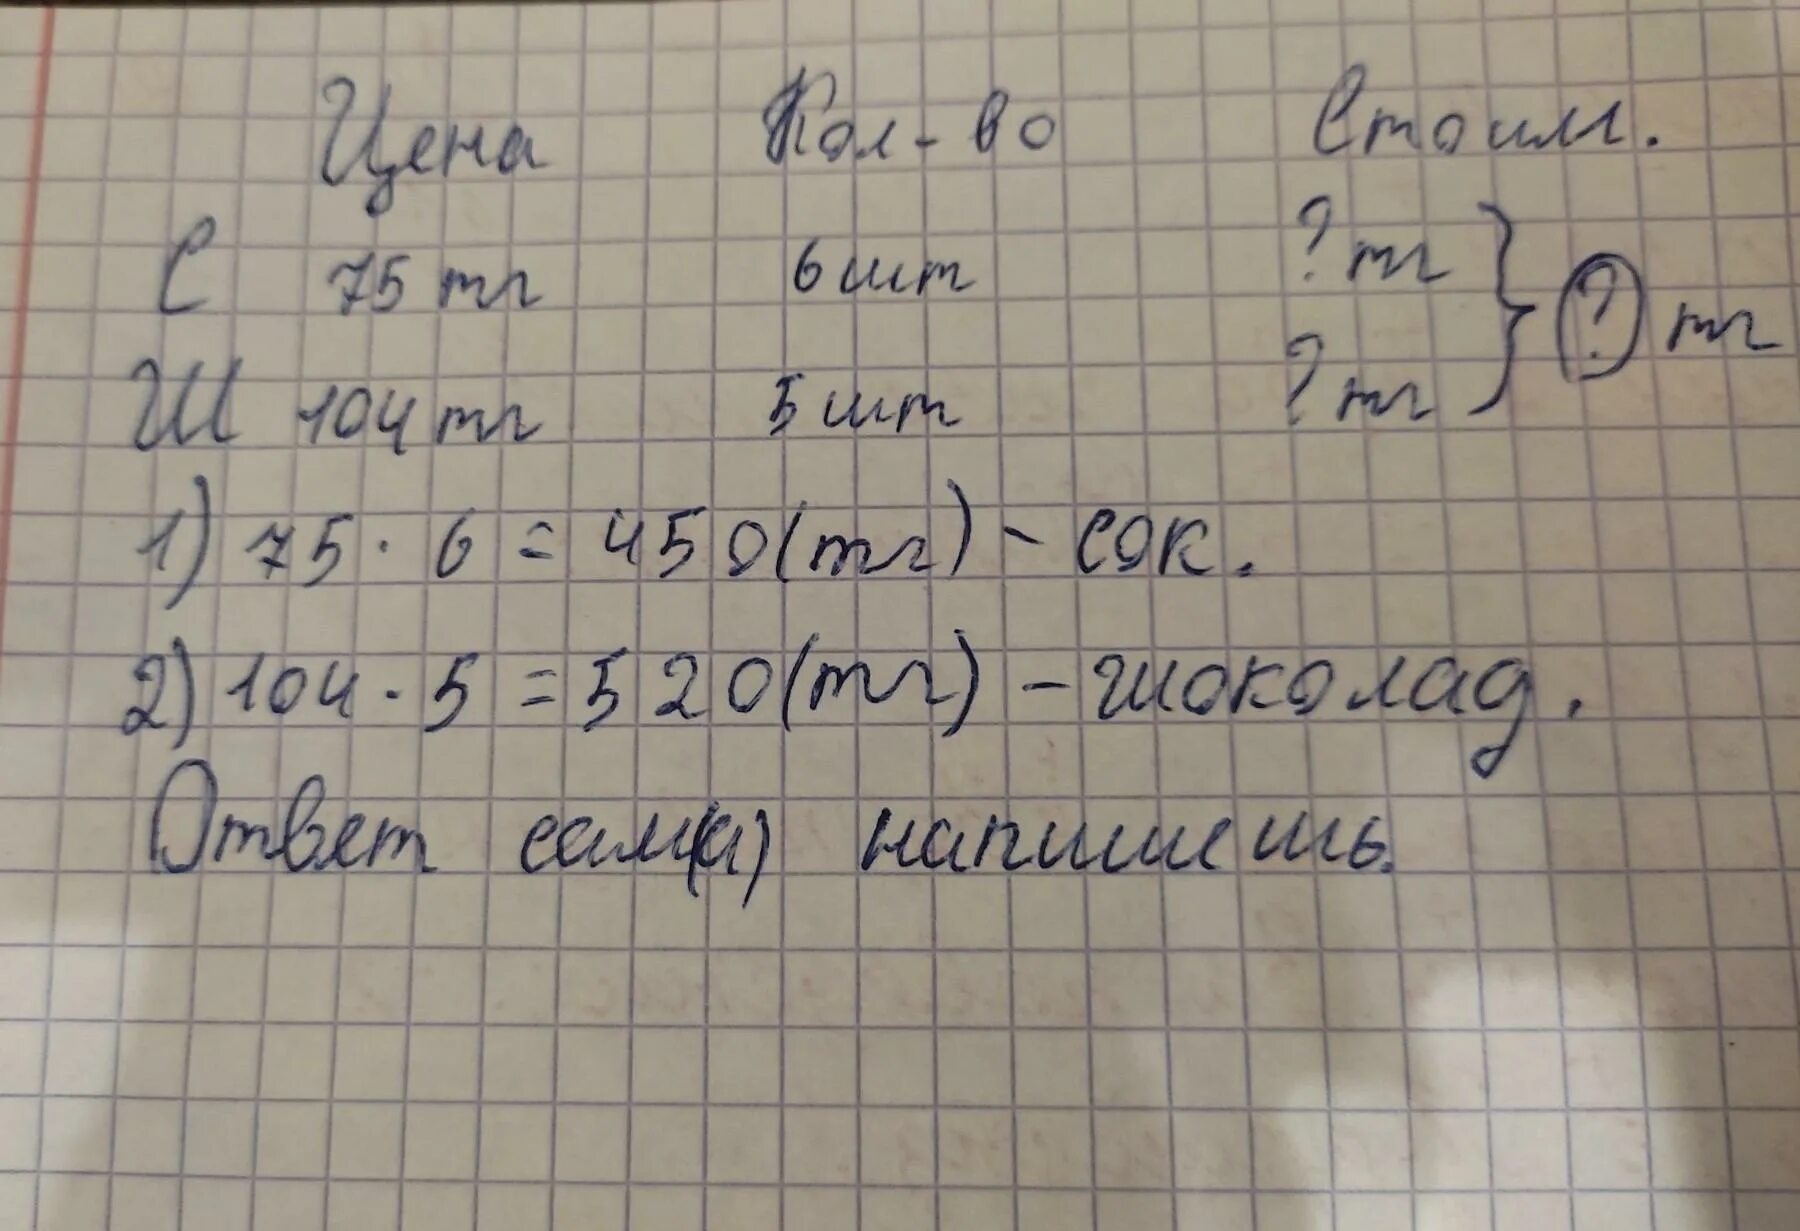 Цена Кол-во Стоим.
С 75 тг 6 шт ? тг
? тг
Ш 104 тг 5 шт ? тг
1) 75 · 6 = 450 (тг) - сок.
2) 104 · 5 = 520 (тг) - шоколад.
Ответ сам(а) напишешь.